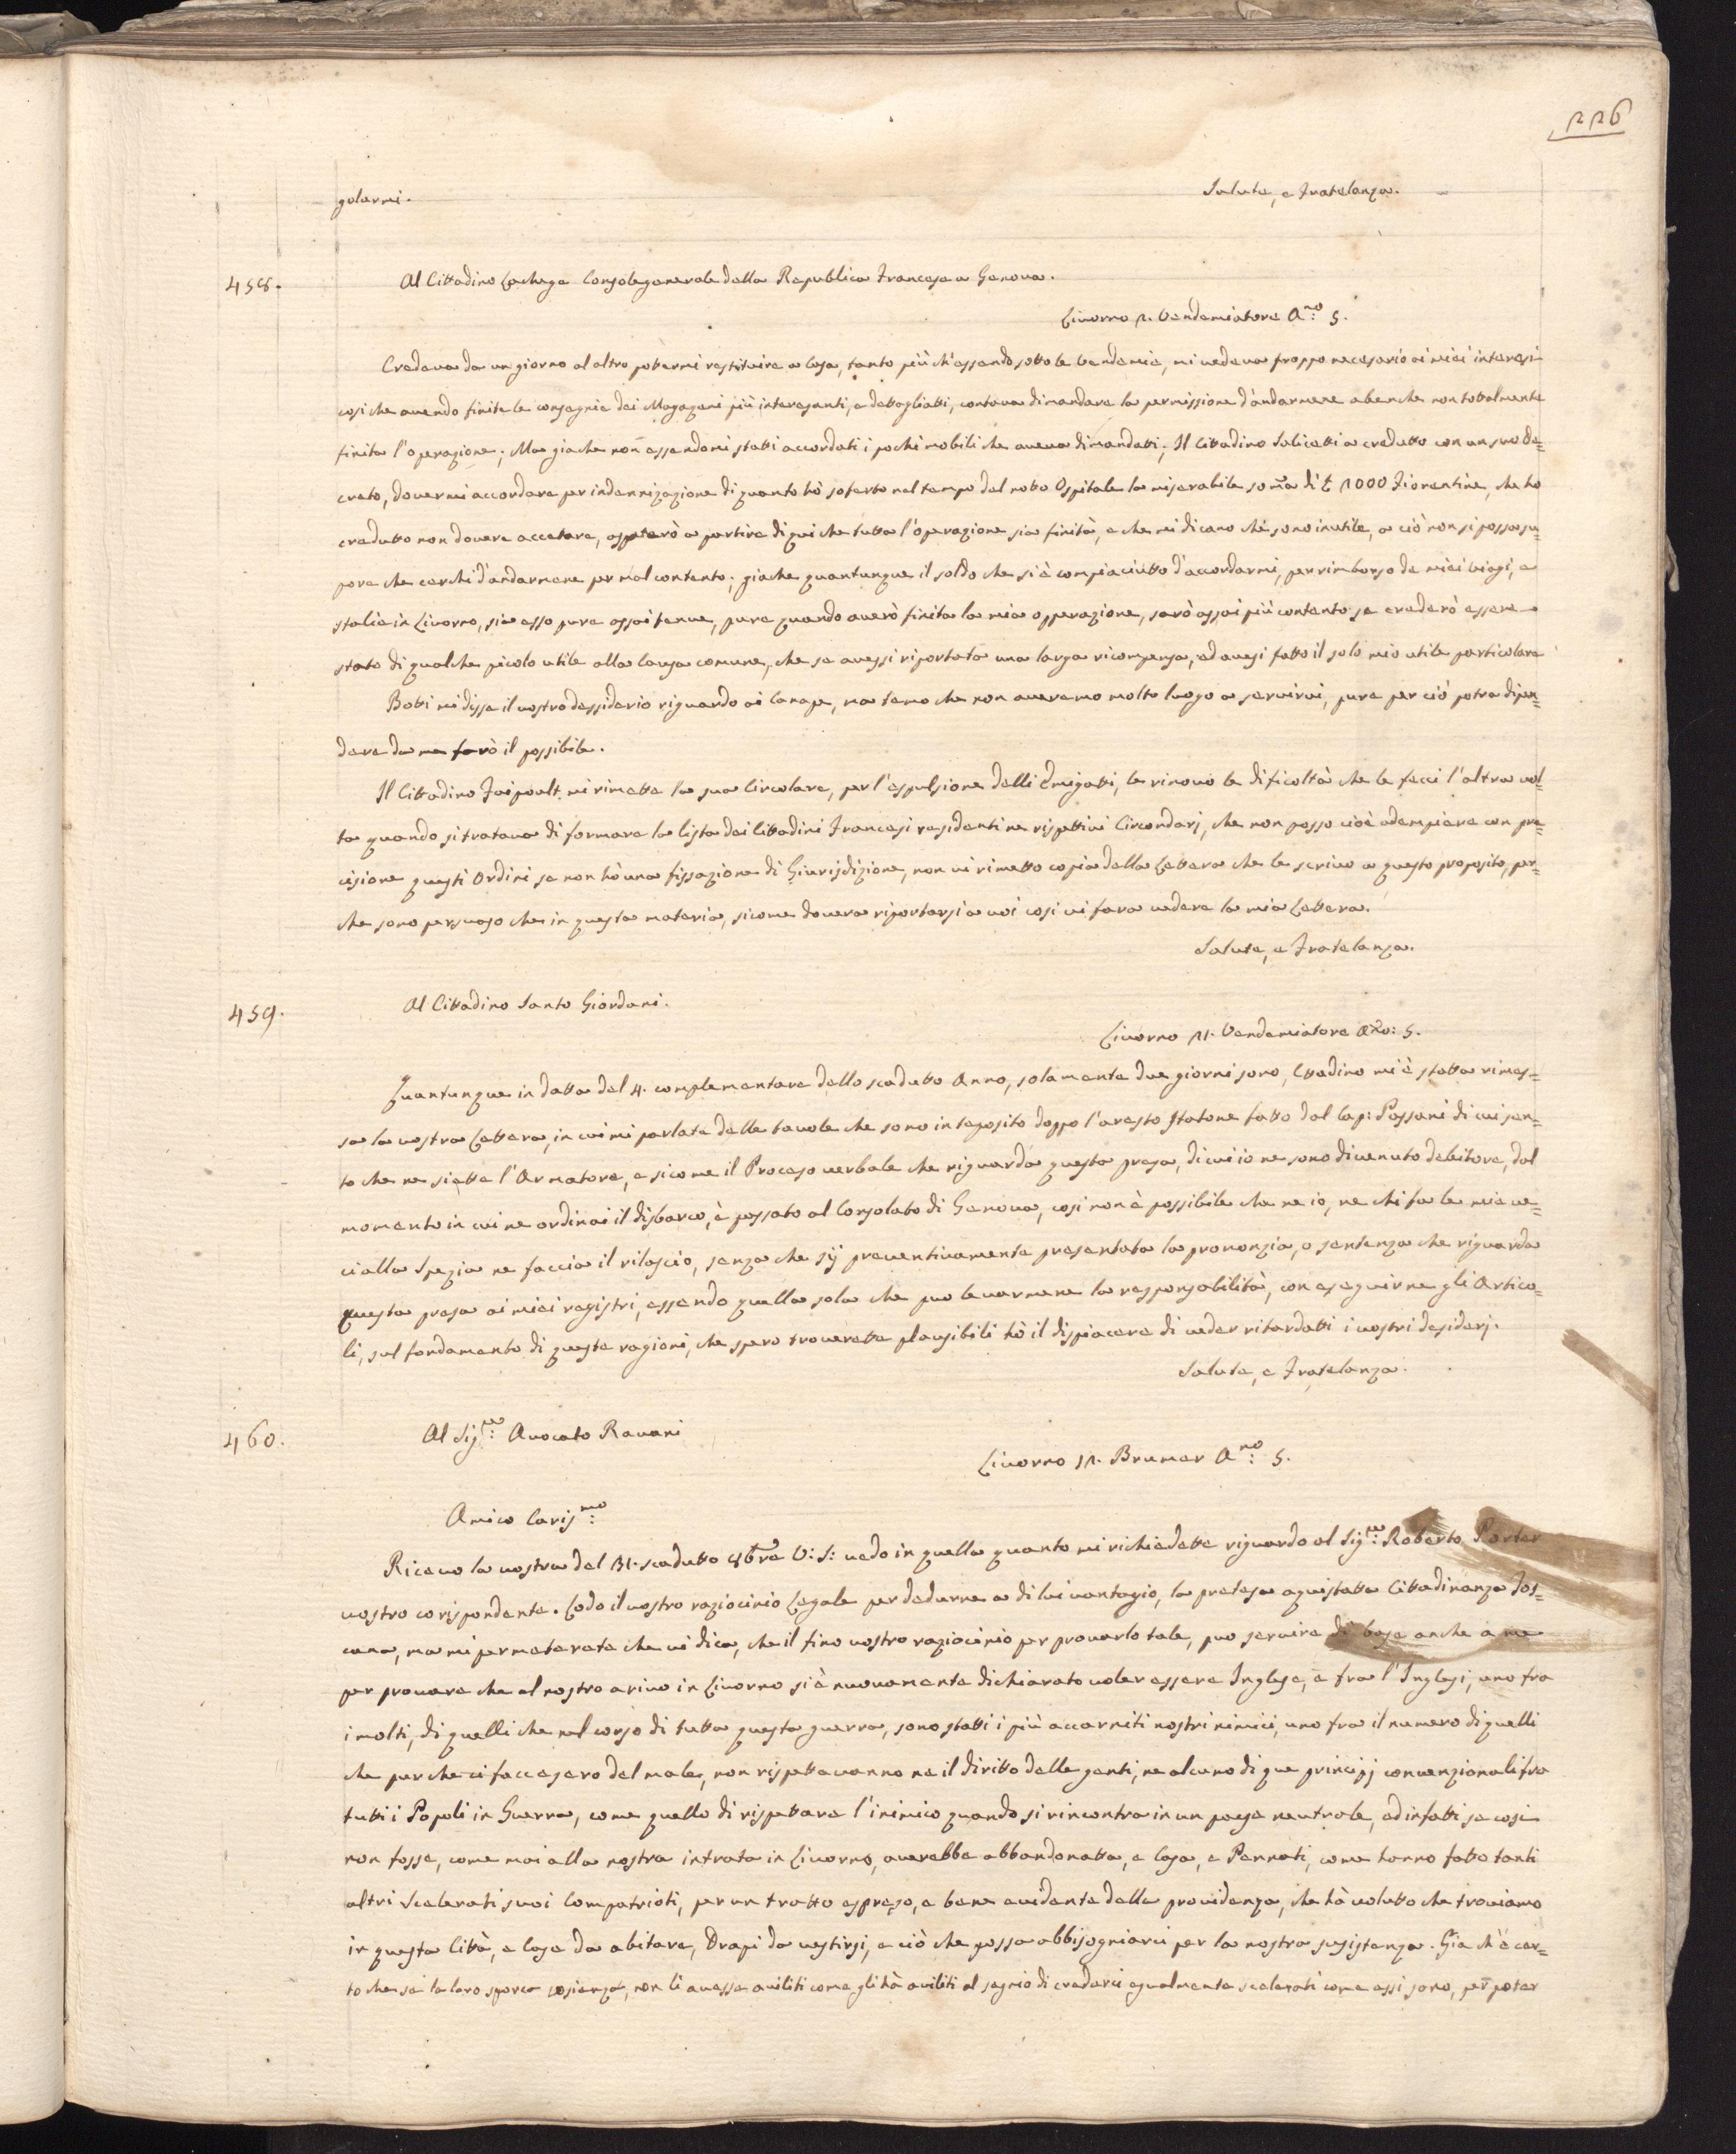 226
golarmi. Salute, e Fratelanza.
458. Al Cittadino Lachege Console generale della Republica Francese a Genova.
Livorno 2. Vendemiatore A.no 5.
Credeva da un giorno al altro potermi restituire a Casa, tanto più ch'essendo sotto le Vendemie, mi vedeva troppo necesario ai miei interesi
cosi che avendo finite le consegnie dei Magazeni più interesanti, e dettagliatti, contava dimandare la permissione d'andarmene abenche non tottalmente
finita l'operazione; Ma giache non essendomi statti accordati i pochi mobili che aveva dimandatti; Il Cittadino Salicetti a credutto con un suo de=
creto, dovermi accordare per indennizazione di quanto hò soferto nel tempo del noto Ospitale la miserabile soma di £ 1000 Fiorentine, che ho
credutto non dovere accetare, aspeterò a partire di qui che tutta l'operazione sia finità, e che mi dicano ch'i sono inutile, a ciò non si possa su=
pore che cerchi d'andarmene per mal contento; giache quantunque il soldo che si è compiaciutto d'accordarmi, per rimborso de miei viagi, e
stalie in Livorno, sia esso pure assai tenue, pure quando averò finita la mia opperazione, sarò assai più contento se crederò essere
stato di qualche picolo utile alla Causa comune, che se avessi riportata una larga ricompensa, ed avesi fatto il solo mio utile particolare
Botti mi disse il vostro dessiderio riguardo ai Canape, ma temo che non averemo molto luogo a servirvi, pure per ciò potra dipen=
dere da me farò il possibile.
Il Cittadino Faipoult mi rimette la sua Circolare, per l'espulsione delli Emigatti, le rinovo le dificoltà che le fecci l'altra vol=
ta quando si tratava di formare la lista dei Cittadini Francesi residenti ne rispettivi Circondarj, che non posso cioè adempiere con pre=
cisione questi Ordini se non hò una fissazione di Giurisdizione, non vi rimetto copia della Lettera che le scrivo a questo proposito, per=
che sono persuaso che in questa materia, sicome dovera riportarsi a voi cosi vi fara vedere la mia Lettera.
Salute, e Fratelanza.
459. Al Cittadino Santo Giordani.
Livorno 21. Vendemiatore Ano: 5.
Quantunque in datta del 4. complementare dello scadutto Anno, solamente due giorni sono, Cttadino mi è statta rimes=
sa la vostra Lettera, in cui mi parlate delle tavole che sono in deposito doppo l'aresto statone fatto dal Cap: Passani di cui sen=
to che ne siatte l'Armatore, e sicome il Proceso verbale che riguarda questa presa, di cui io ne sono divenuto debitore, dal
momento in cui ne ordinai il disbarco, è passato al Consolato di Genova, cosi non è possibile che ne io, ne chi fa le mie ve=
ci alla Spezia ne faccia il rilascio, senza che sij preventivamente presentata la prononzia, o sentenza che riguarda
questa presa ai miei registri, essendo quella sola che puo levarmene la responsabilità, con eseguirne gli Artico=
li, sul fondamento di queste ragioni, che spero troverette plausibili hò il dispiacere di veder ritardatti i vostri desiderj.
Salute, e Fratelanza.
460. Al Sig.re Avocato Ravani
Livorno 12. Brumer A.no 5.
Amico Caris.mo
Ricevo la vostra del 31. scadutto 8bre V: S: vedo in quella quanto mi richiedette riguardo al Sig.re Roberto Porter
vostro corispondente. Lodo il vostro raziocinio Legale per dedurne a di lui vantagio, la pretesa aquistatta Cittadinanza Tos=
cana, ma mi permeterate che vi dica, che il fino vostro raziocinio per provarlo tale, puo servire di base anche a me
per provare che al nostro arivo in Livorno si è nuovamente dichiarato voler essere Inglese, e fra l'Inglesi, uno fra
i molti, di quelli che nel corso di tutta questa guerra, sono statti i più accarniti nostri nimici, uno fra il numero di quelli
che purche ci faccesero del male, non rispettavanno ne il diritto delle genti, ne alcuno di que principj convenzionali fra
tutti i Popoli in Guerra, come quello di rispettare l'inimico quando si rincontra in un paese neutrale, ed infatti se cosi
non fosse, come mai alla nostra intrata in Livorno, averebbe abbandonatta, e Casa, e Pennati, come hanno fatto tanti
altri Scelerati suoi Compatrioti, per un tratto espreso, e bene evidente della providenza, che hà volutto che troviamo
in questa Città, e Case da abitare, Drapi da vestirsi, e ciò che possa abbisogniarci per la nostra susistenza. Gia ch'è cer=
to che se la loro sporca cosienza, non li avesse aviliti come gli hà aviliti al segnio di crederci egualmente scelerati come essi sono, per poter